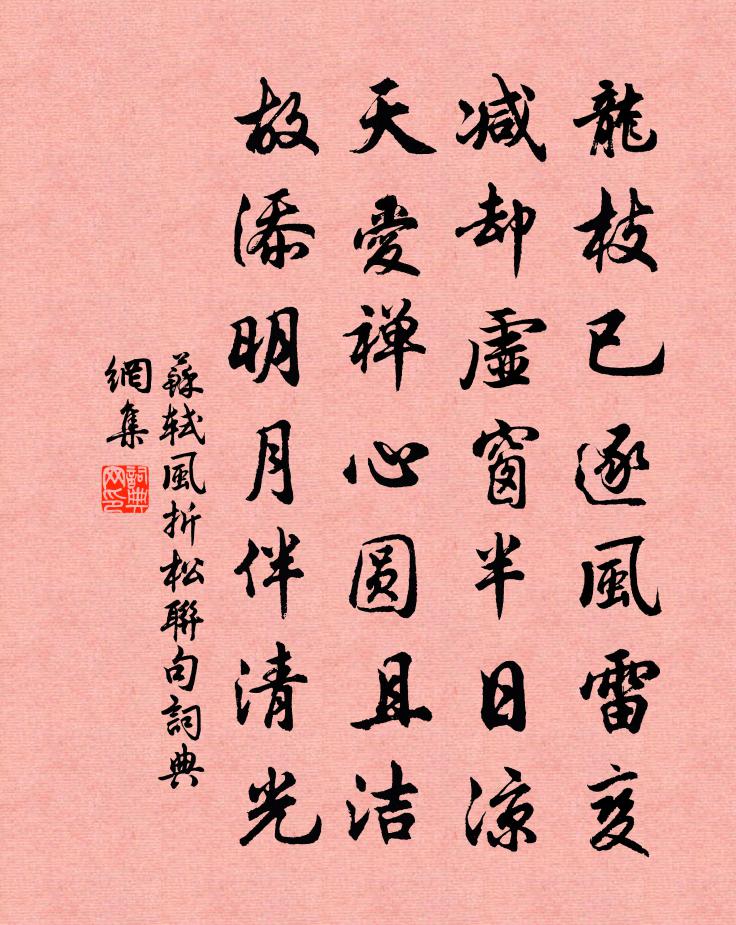 龍枝已逐風雷变
減却虛窗半日涼
天愛禅心圆且洁
故添明月伴清光
蘇軾風折松聯句詞典
網集
詞典
网印